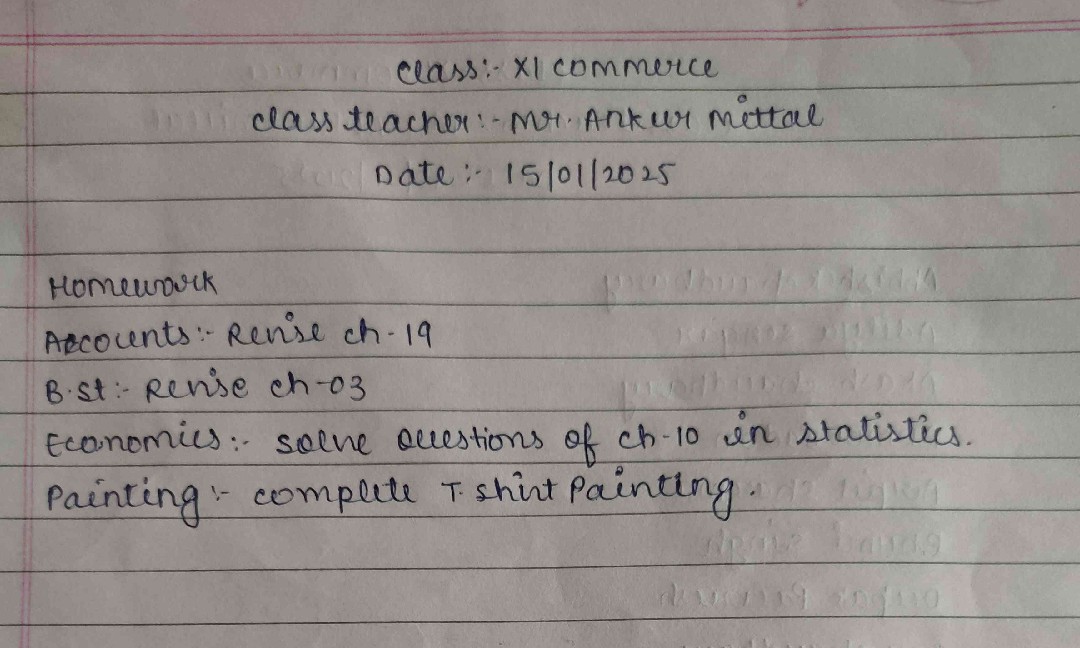 Class:- XI Commerce
Class teacher:- Mr. Ankur Mittal
Date:- 15/01/2025
Homework
Accounts:- Revise ch-19
B.st:- Revise ch-03
Economics:- Solve Questions of ch-10 in statistics.
Painting:- complete T.shirt Painting.